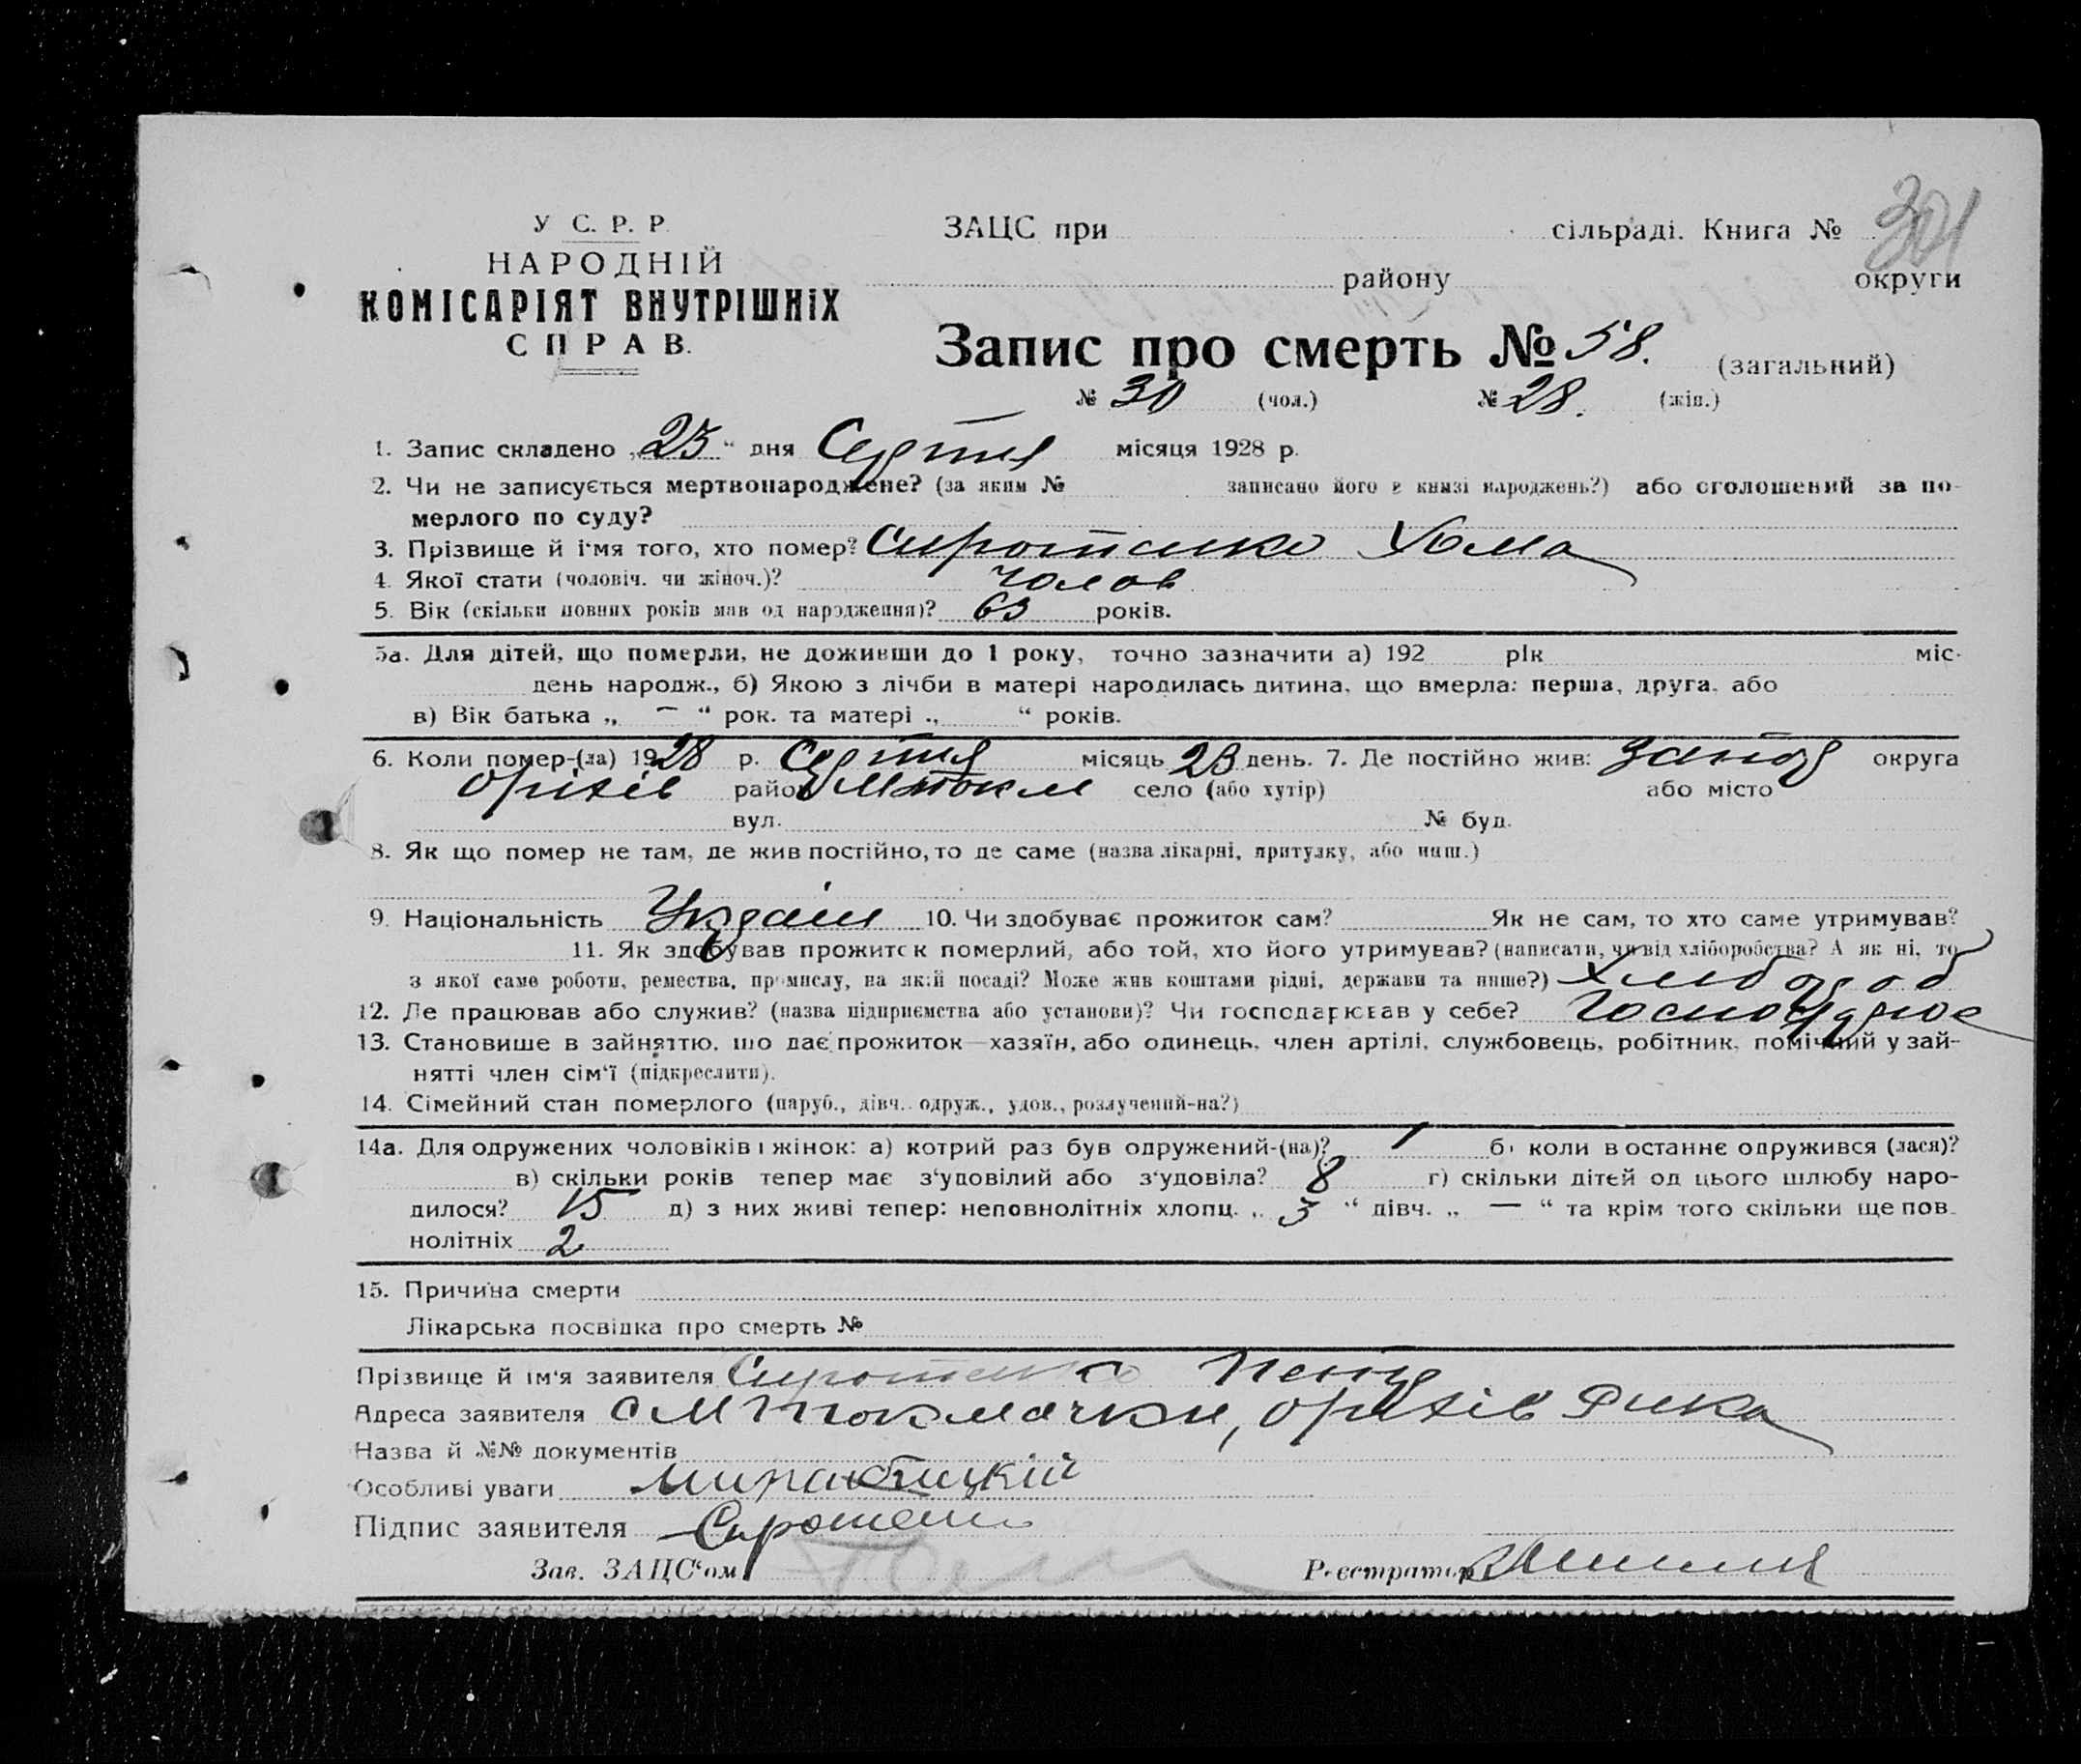 301
У С. Р. Р.
НАРОДНІЙ
КОМІСАРІЯТ ВНУТРІШНІХ
СПРАВ.
ЗАЦС при сільраді. Книга №
району округи
Запис про смерть № 58. (загальний)
№ 30 (чол.) № 28. (жін.)
1. Запис складено „23“ дня Серпня місяця 1928 р.
2. Чи не записується мертвонароджене? (за яким № записано його в книзі народжень?) або оголошений за по-
мерлого по суду?
3. Прізвище й і'мя того, хто помер? Сиротенко Хома
4. Якої стати (чоловіч. чи жіноч.)? Чолов
5. Вік (скільки повних років мав од народження)? 63 років.
5а. Для дітей, що померли, не доживши до 1 року, точно зазначити а) 192 рік міс.
день народж., б) Якою з лічби в матері народилась дитина, що вмерла: перша, друга, або
в) Вік батька „ – “ рок. та матері „ “ років.
6. Коли помер-(ла) 1928 р. Серпня місяць 23 день. 7. Де постійно жив: Запор округа
Оріхів район М Токм село (або хутір) або місто
вул. № буд.
8. Як що помер не там, де жив постійно, то де саме (назва лікарні, притулку, або инш.)
9. Національність Україн 10. Чи здобуває прожиток сам? Як не сам, то хто саме утримував?
11. Як здобував прожиток померлий, або той, хто його утримував? (написати, чи від хліборобства? А як ні, то
з якої саме роботи, ремества, промислу, на якій посаді? Може жив коштами рідні, держави та инше?) Хлібороб
12. Де працював або служив? (назва підприємства або установи)? Чи господарював у себе? Господарює
13. Становище в зайняттю, що дає прожиток—хазяїн, або одинець, член артілі, службовець, робітник, помічний у зай-
нятті член сім'ї (підкреслити).
14. Сімейний стан померлого (паруб., дівч. одруж., удов., розлучений-на?)
14а. Для одружених чоловіків і жінок: а) котрий раз був одружений-(на)? 1 б) коли в останнє одружився (лася)?
в) скільки років тепер має з'удовілий або з'удовіла? 8 г) скільки дітей од цього шлюбу наро-
дилося? 15 д) з них живі тепер: неповнолітніх хлопц. „ 3 “ дівч. „ — “ та крім того скільки ще пов-
нолітніх 2
15. Причина смерти
Лікарська посвідка про смерть №
Прізвище й ім'я заявителя Сиротенко
Адреса заявителя с М Токмачки, Оріхів Рика
Назва й №№ документів
Особливі уваги
Підпис заявителя Сиротенко
Зав. ЗАЦС'ом Реєстратор